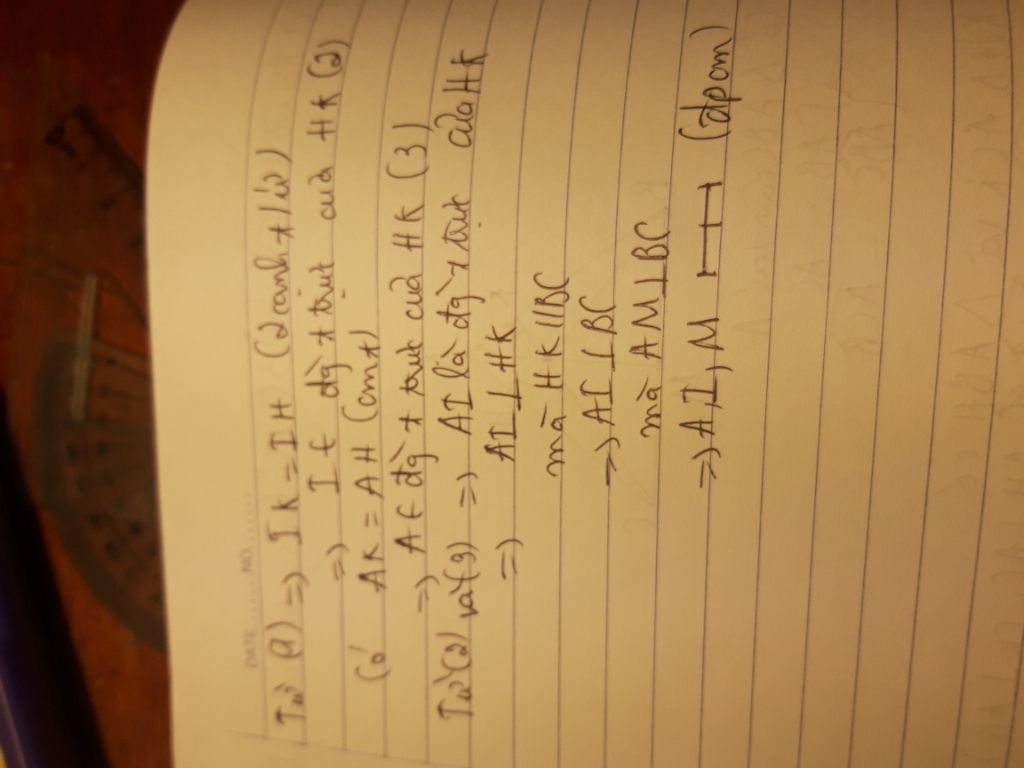 DATE ......... NO. .........
Từ (1) => IK = IH (2 cạnh t/ứ)
=> I ∈ đg` t trực của HK (2)
Có AK = AH (cmt)
=> A ∈ đg` t trực của HK (3)
Từ (2) và (3) => AI là đg` t trực của HK
=> AI ⊥ HK
mà HK // BC
=> AI ⊥ BC
mà AM ⊥ BC
=> A, I, M (đpcm)